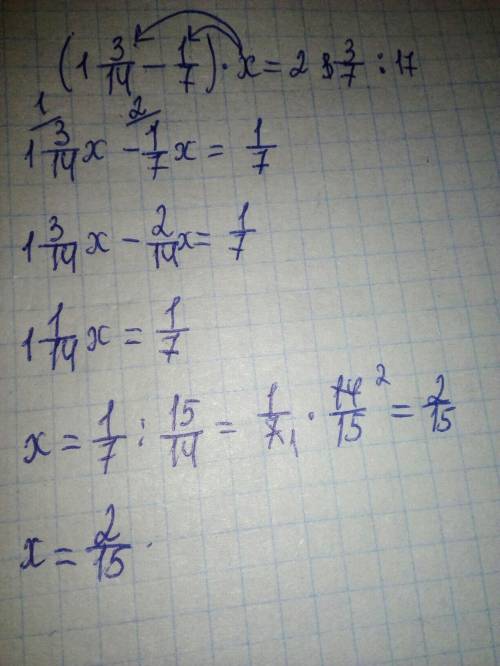 (1 3/14 - 1/7) · x = 2 3/7 : 17
1 3/14 x - 1/7 x = 1/7
1 3/14 x - 2/14 x = 1/7
1 1/14 x = 1/7
x = 1/7 : 15/14 = 1/7 · 14/15 = 2/15
x = 2/15